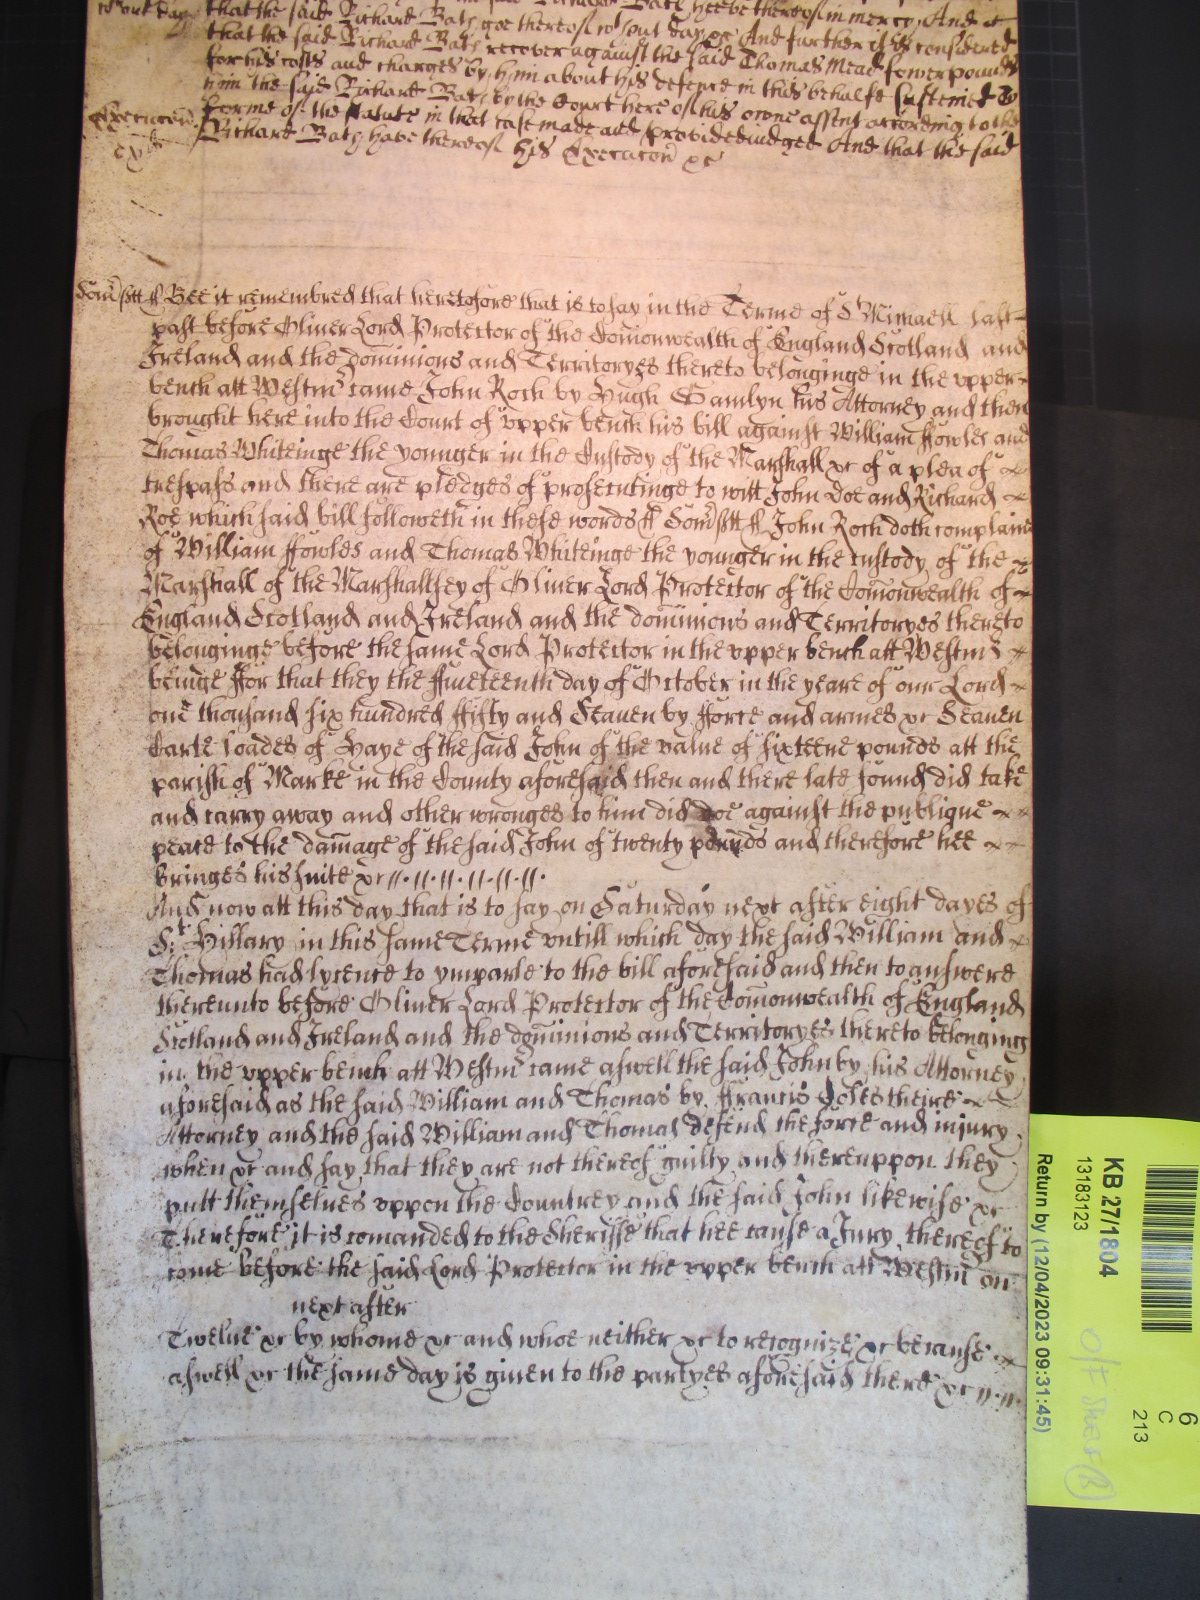 that the said Richard Baty goe thereof without day &c And further it is considered
that the said Richard Baty recover against the said Thomas Mead fower pounds
for his costs and charges by him about his defence in this behalfe susteined to
him the said Richard Baty by the Court here of his owne assent according to the
forme of the statute in that case made and provided adjudged And that the said
Execucon
Richard Baty have thereof his Execucon &c
Som sstt ss Bee it remembred that heretofore that is to say in the Terme of St Michaell last
past before Oliver Lord Protector of the Comonwealth of England Scotland and
Ireland and the dominions and Territoryes thereto belonginge in the upper
bench att Westmr came John Rock by Hugh Gamlyn his Attorney and then
brought here into the Court of upper bench his bill against William ffowles and
Thomas Whiteinge the younger in the Custody of the Marshall &c of a plea of
trespass and there are pledges of prosecutinge to witt John Doe and Richard
Roe which said bill followeth in these words ss Som sstt ss John Rock doth complaine
of William ffowles and Thomas Whiteinge the younger in the custody of the
Marshall of the Marshallsey of Oliver Lord Protector of the Comonwealth of
England Scotland and Ireland and the dominions and Territoryes thereto
belonginge before the same Lord Protector in the upper bench att Westmr
beinge ffor that they the ffiveteenth day of October in the yeare of our Lord
one thousand six hundred ffifty and Seaven by fforce and armes &c Seaven
Carte loades of Haye of the said John of the value of sixteene pounds att the
parish of Marke in the County aforesaid then and there late found did take
and carry away and other wronges to him did doe against the publique
peace to the damage of the said John of twenty pounds and therefore hee
bringes his suite &c //.//.//.//.//.//.
And now att this day that is to say on Saturday next after eight dayes of
St Hillary in this same Terme untill which day the said William and
Thomas had lycence to ymparle to the bill aforesaid and then to answere
thereunto before Oliver Lord Protector of the Comonwealth of England
Scotland and Ireland and the dominions and Territoryes thereto belonging
in the upper bench att Westmr came aswell the said John by his Attorney
aforesaid as the said William and Thomas by ffrancis Coles theire
Attorney and the said William and Thomas defend the force and injury
when &c and say that they are not thereof guilty and thereuppon they
putt themselves uppon the Countrey and the said John likewise &c
Therefore it is comanded to the Sheriffe that hee cause a Jury thereof to
come before the said Lord Protector in the upper bench att Westmr on
next after
Twelve &c by whome &c and whoe neither &c to recognize &c because
aswell &c the same day is given to the partyes aforesaid there &c //.//.
KB 27/1804
13183123
Return by (12/04/2023 09:31:45)
6
C
213